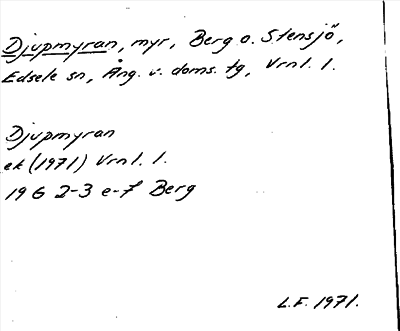 Djupmyran, myr, Berg o. Stensjö,
Edsele sn, Ång. v. doms. tg, Vrnl. l.
Djupmyran
ek (1971) Vrnl. l.
19 G 2-3 e-f Berg
L.F. 1971.